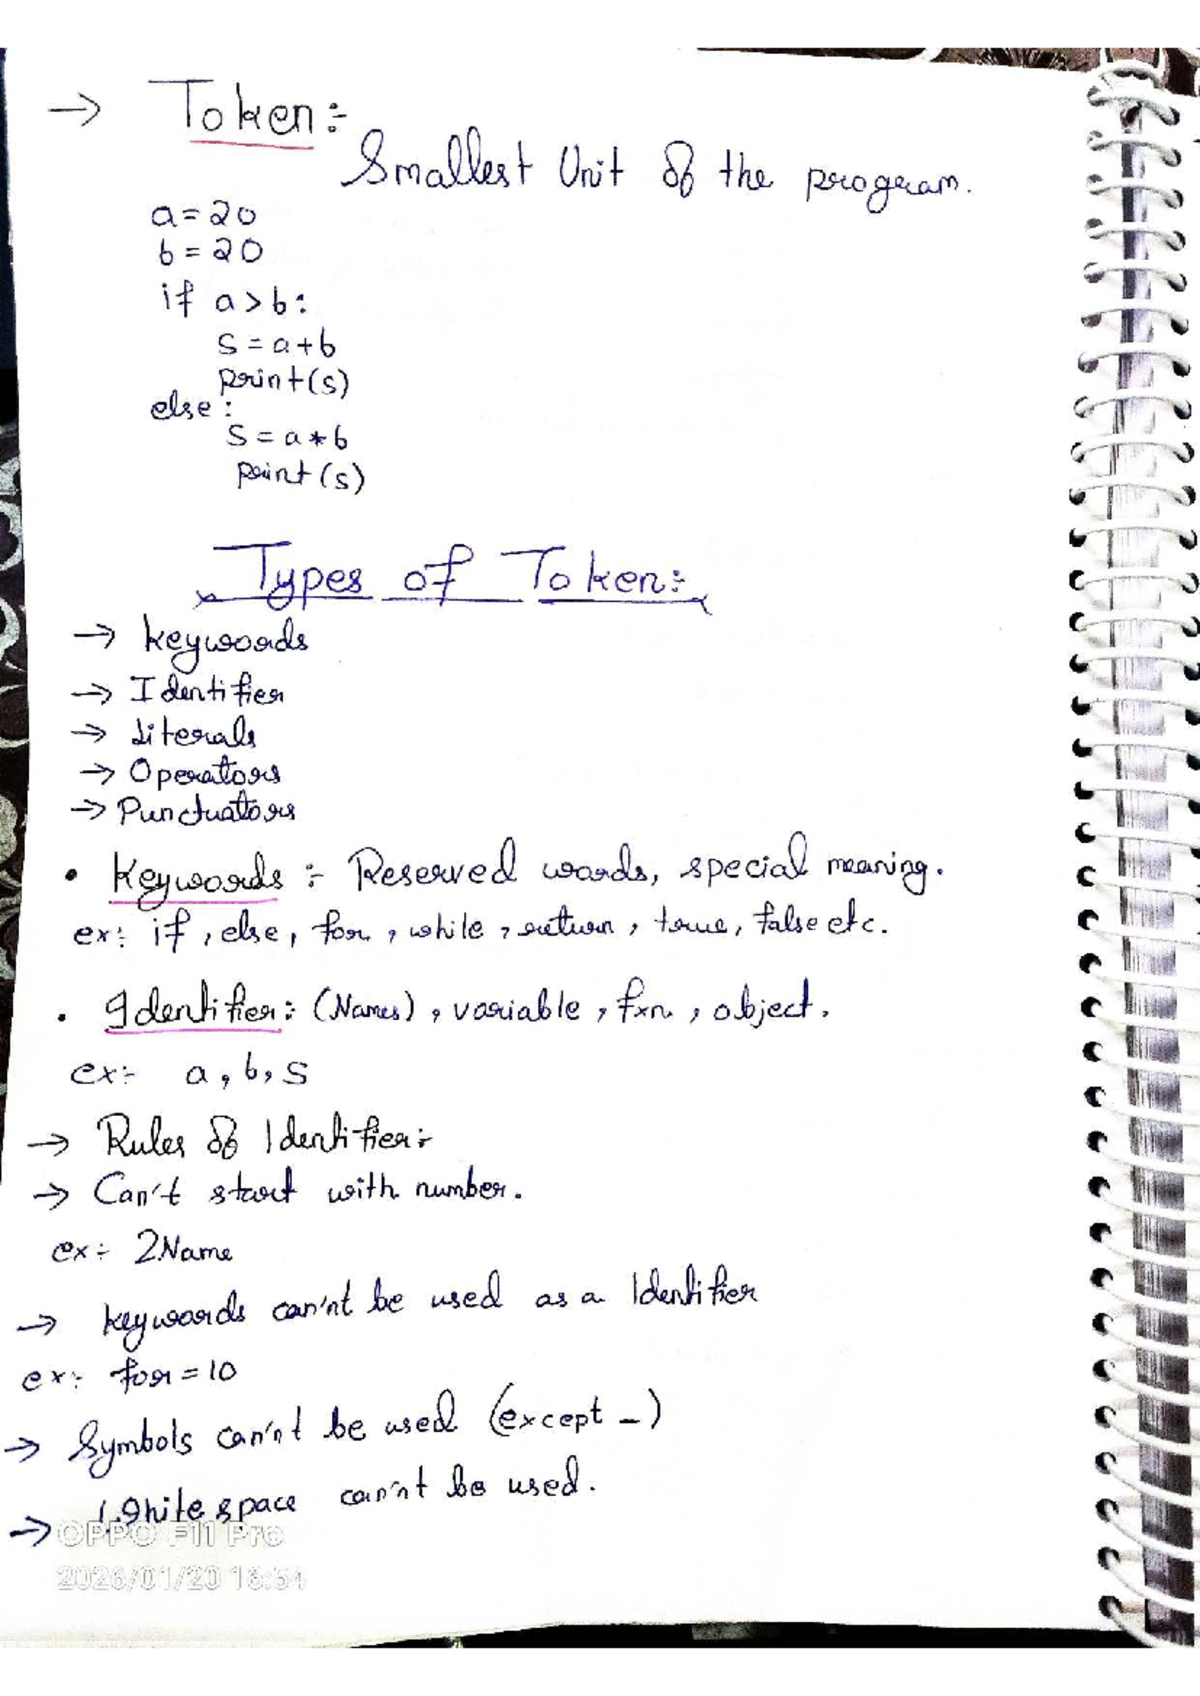 → Token :-
Smallest Unit of the program.
a = 20
b = 20
if a > b :
s = a + b
print(s)
else :
s = a * b
print(s)
Types of Token :-
→ Keywords
→ Identifier
→ Literals
→ Operators
→ Punctuators
• Keywords :- Reserved words, special meaning.
ex :- if, else, for, while, return, true, false etc.
• Identifier :- (Names), variable, fxn., object.
ex :- a, b, s
→ Rules of Identifier :-
→ Can't start with number.
ex :- 2Name
→ Keywords can'nt be used as a Identifier
ex :- for = 10
→ Symbols can'nt be used (except _)
→ White space can'nt be used.
OPPO F11 Pro
2026/01/20 18:34